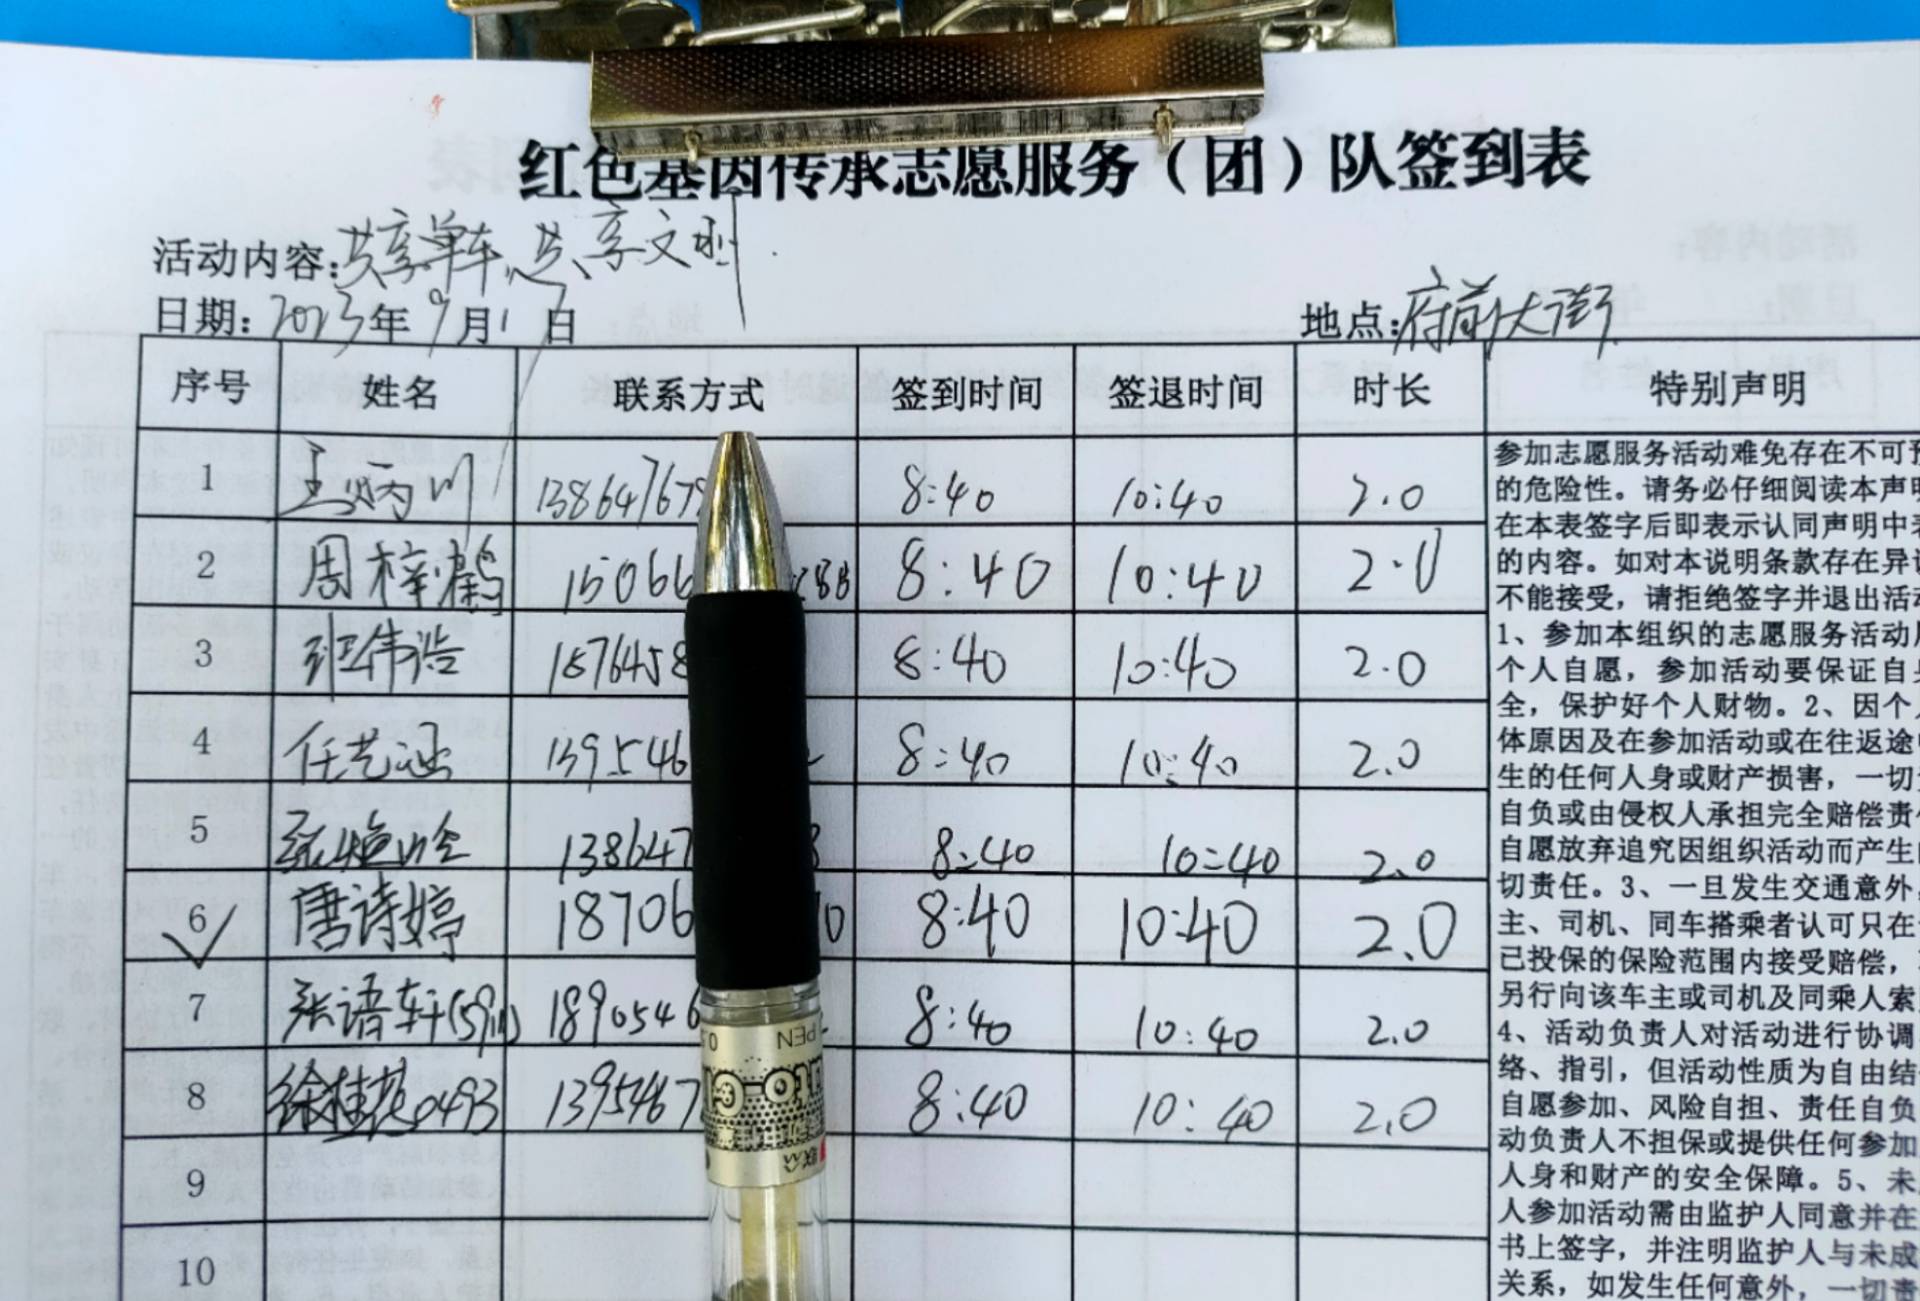 红色基因传承志愿服务（团）队签到表
活动内容：共享单车，共享文明
日期：2023年9月1日 地点：府前大街
序号 姓名 联系方式 签到时间 签退时间 时长 特别声明
1 138647679 8:40 10:40 2.0
2 周梓鹤 15066 288 8:40 10:40 2.0
3 张伟浩 1876458 8:40 10:40 2.0
4 任艺涵 139546 8:40 10:40 2.0
5 138647 8 8:40 10:40 2.0
6 唐诗婷 18706 0 8:40 10:40 2.0
7 张语轩 1890546 8:40 10:40 2.0
8 徐桂花0493 1395467 8:40 10:40 2.0
9
10
参加志愿服务活动难免存在不可预
的危险性。请务必仔细阅读本声明
在本表签字后即表示认同声明中表
的内容。如对本说明条款存在异议
不能接受，请拒绝签字并退出活动
1、参加本组织的志愿服务活动
个人自愿，参加活动要保证自身
全，保护好个人财物。2、因个人
体原因及在参加活动或在往返途中
生的任何人身或财产损害，一切
自负或由侵权人承担完全赔偿责任
自愿放弃追究因组织活动而产生的
切责任。3、一旦发生交通意外，
主、司机、同车搭乘者认可只在
已投保的保险范围内接受赔偿，
另行向该车主或司机及同乘人索
4、活动负责人对活动进行协调
络、指引，但活动性质为自由结
自愿参加、风险自担、责任自负
动负责人不担保或提供任何参加
人身和财产的安全保障。5、未
人参加活动需由监护人同意并在
书上签字，并注明监护人与未成
关系，如发生任何意外，一切责
PEN